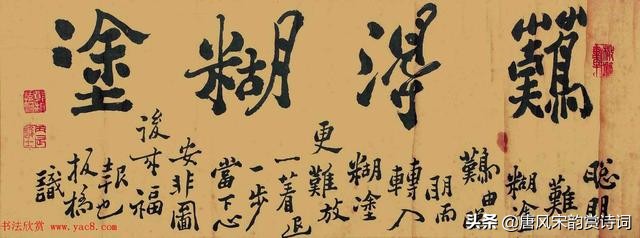 難淂糊塗
聰明
難糊塗
難由聰
明而
轉入
糊塗
更難放
一着退
一步
當下心
安非圖
後来福
報也
板橋
識
书法欣赏
www.yac8.com
头条 @唐风宋韵赏诗词